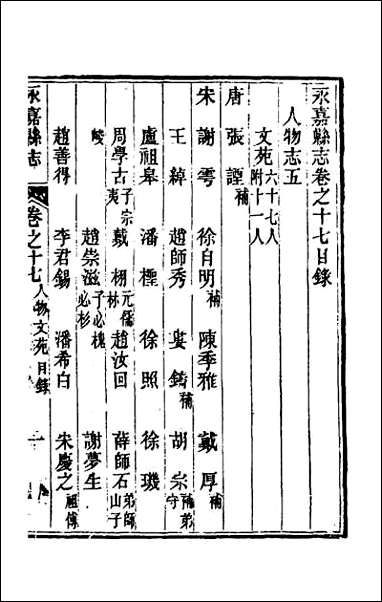 永嘉縣志卷之十七目錄
人物志五
文苑六十七人附十一人
唐 張諲補
宋 謝雩 徐自明補 陳季雅 戴厚補
王綽 趙師秀 婁鑄補 胡宗補弟守
盧祖皋 潘檉 徐照 徐璣
周學古子宗夷 戴栩元儒林 趙汝回 薛師石弟師山子
崚 趙崇滋子必槐必杉 謝夢生
趙善得 李君錫 潘希白 朱慶之祖傅
永嘉縣志 卷之十七人物文苑目錄 一